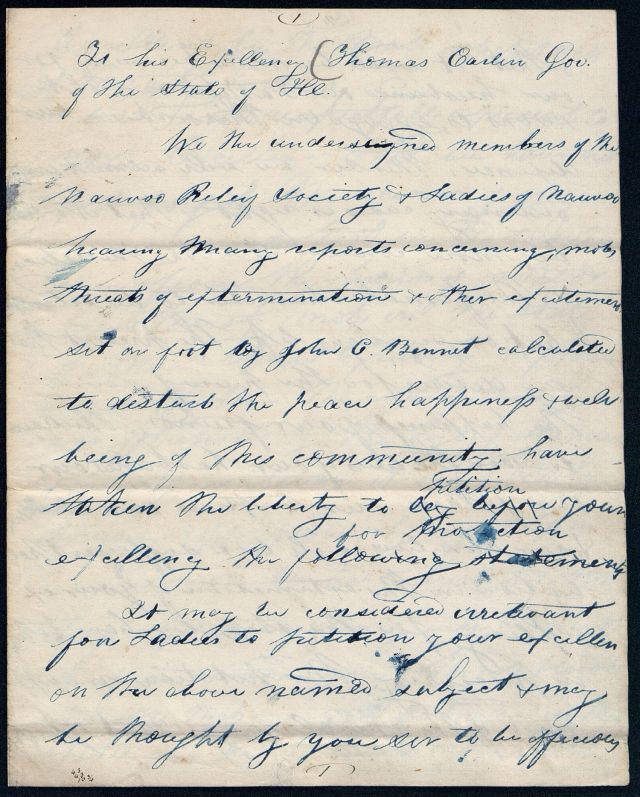 1
To his Exellency (Thomas Carlin Gov.
of the State of Ill.
We the undersigned members of the
Nauvoo Relief Society & Ladies of Nauvoo
hearing many reports concerning mobs
threats of extermination & other excitement
set on foot by John C. Bennet calculated
to disturb the peace happiness & well
being of this community have
petition
taken the liberty to lay before your
for protection
exellency the following statements
It may be considered irrelevant
for Ladies to petition your excellen
on the above named subject & may
be thought by you sir to be officious
1